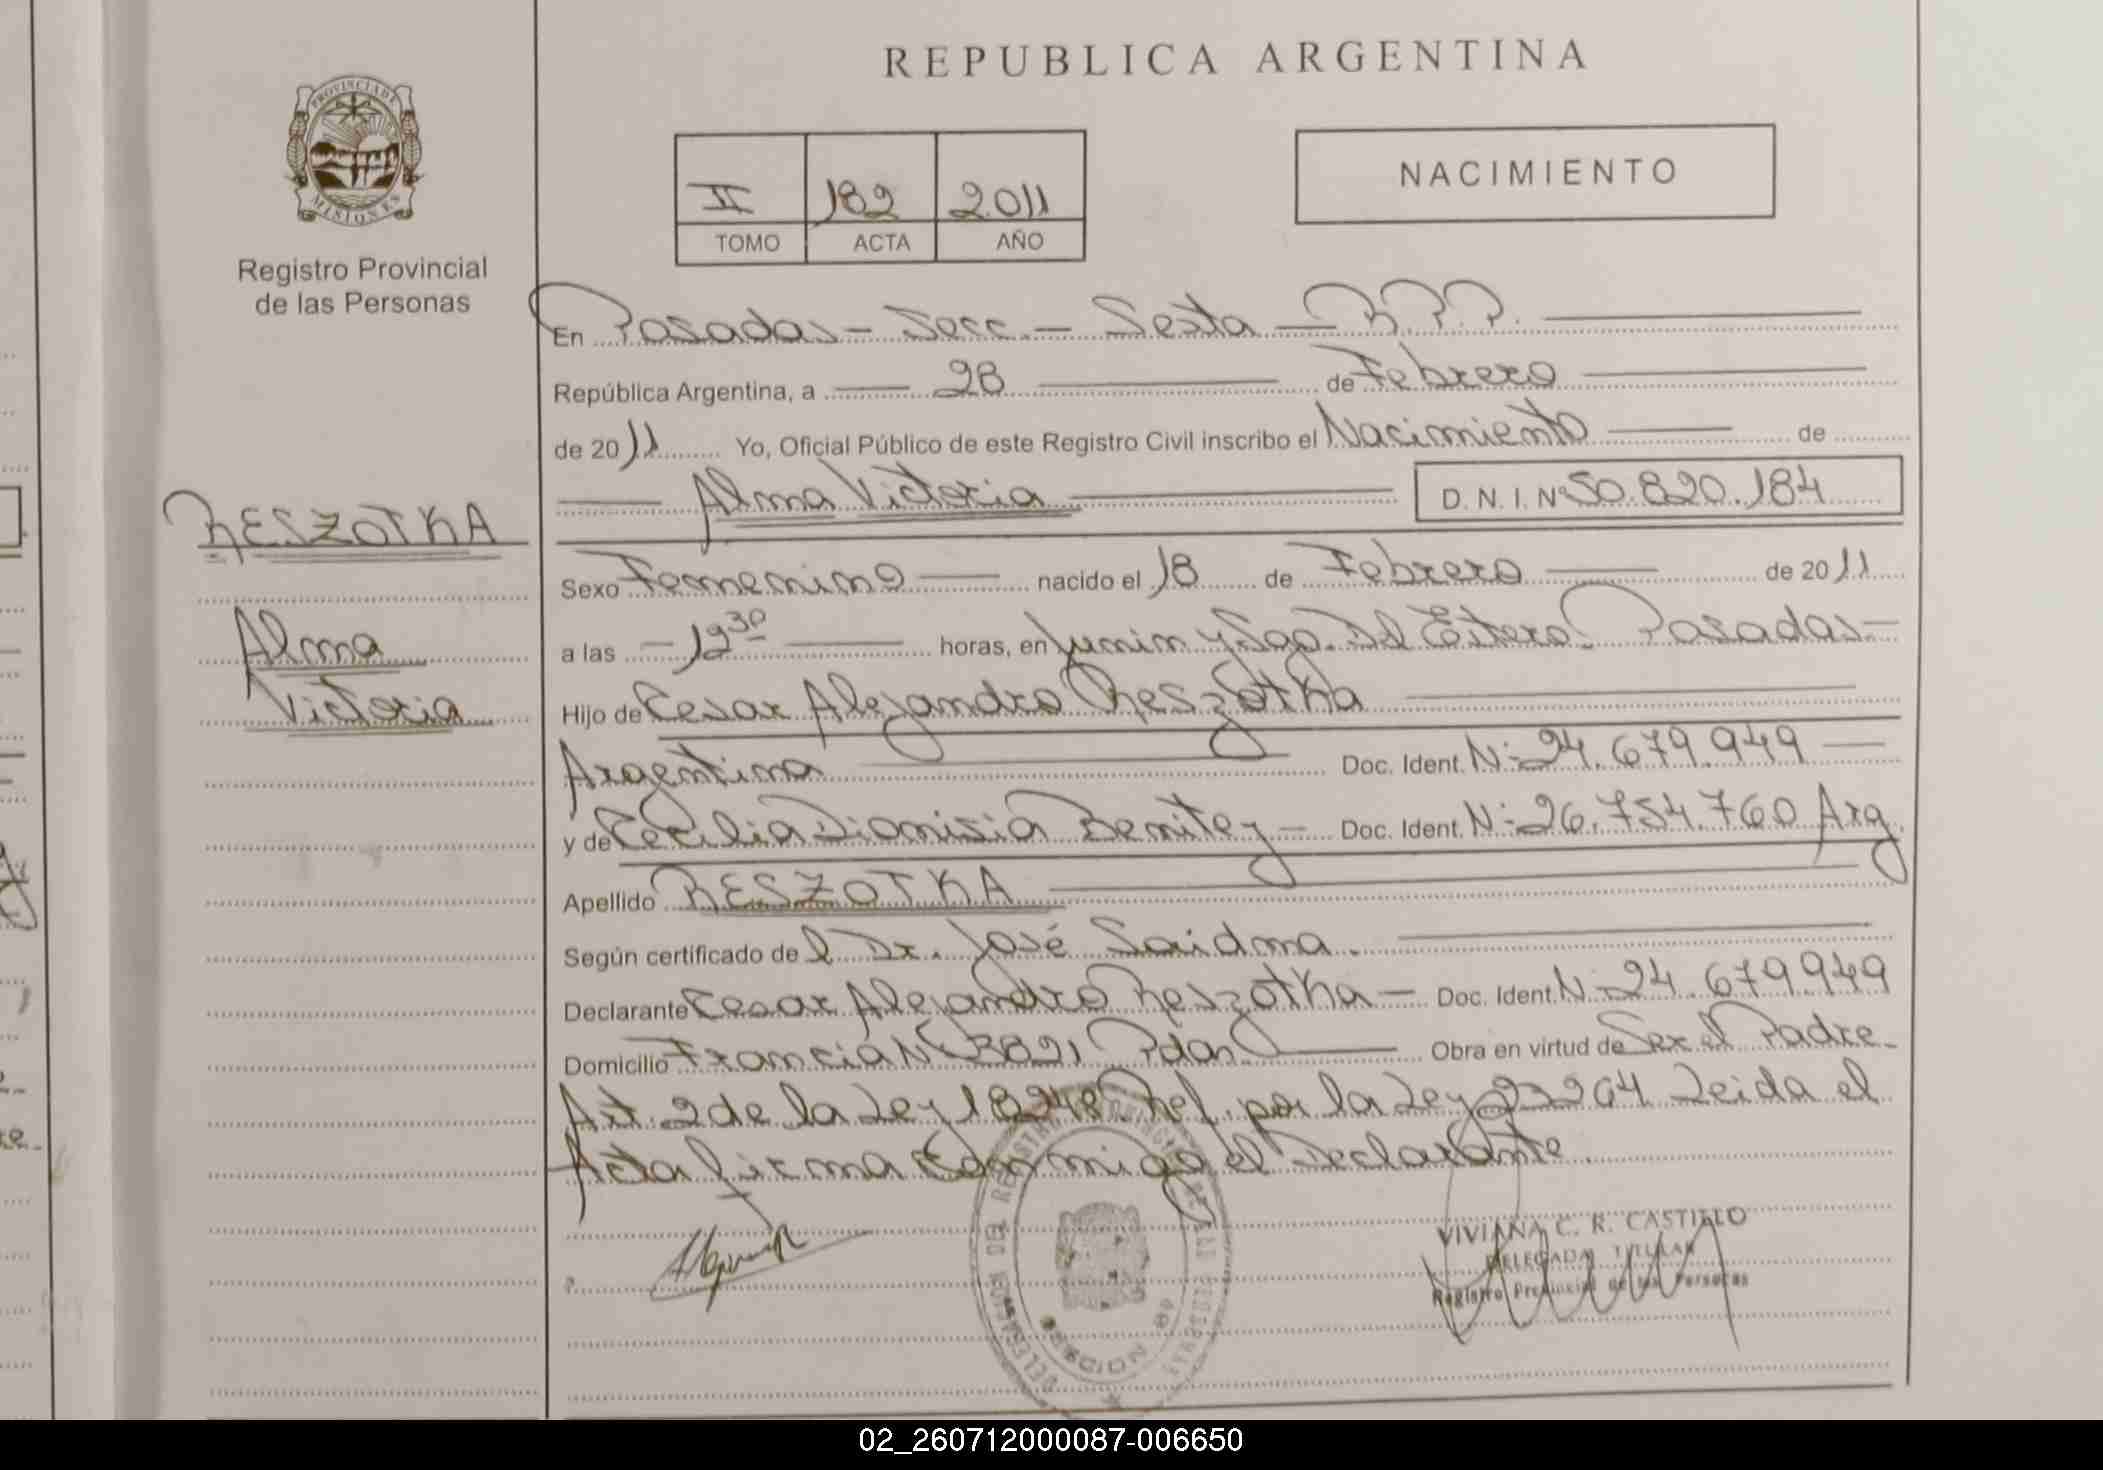 REPUBLICA ARGENTINA
PROVINCIA DE
MISIONES
Registro Provincial
de las Personas
II 182 2011
TOMO ACTA AÑO
NACIMIENTO
En Posadas - Secc. - Sexta - R.P.P.
República Argentina, a 28 de Febrero
de 2011 Yo, Oficial Público de este Registro Civil inscribo el Nacimiento de
Alma Victoria D. N. I. Nº 50.820.184
RESZOTKA
Alma
Victoria
Sexo Femenino nacido el 18 de Febrero de 2011
a las - 12 30 horas, en Junin y Sgo. Del Estero. Posadas -
Hijo de Cesar Alejandro Reszotka
Argentina Doc. Ident. N: 24.679.949
y de Cecilia Dionisia Benitez - Doc. Ident. N: 26.754.760 Arg.
Apellido RESZOTKA
Según certificado de l Dr. José Saidma.
Declarante Cesar Alejandro Reszotka - Doc. Ident. N: 24.679.949
Domicilio Francia Nº 3821 Pdas Obra en virtud de Ser el Padre -
Art. 2 de la Ley 18248 Ref. por la Ley 23264 Leida el
Acta firma conmigo el Declarante.
VIVIANA C. R. CASTILLO
DELEGADA TITULAR
Registro Provincial de las Personas
02_260712000087-006650